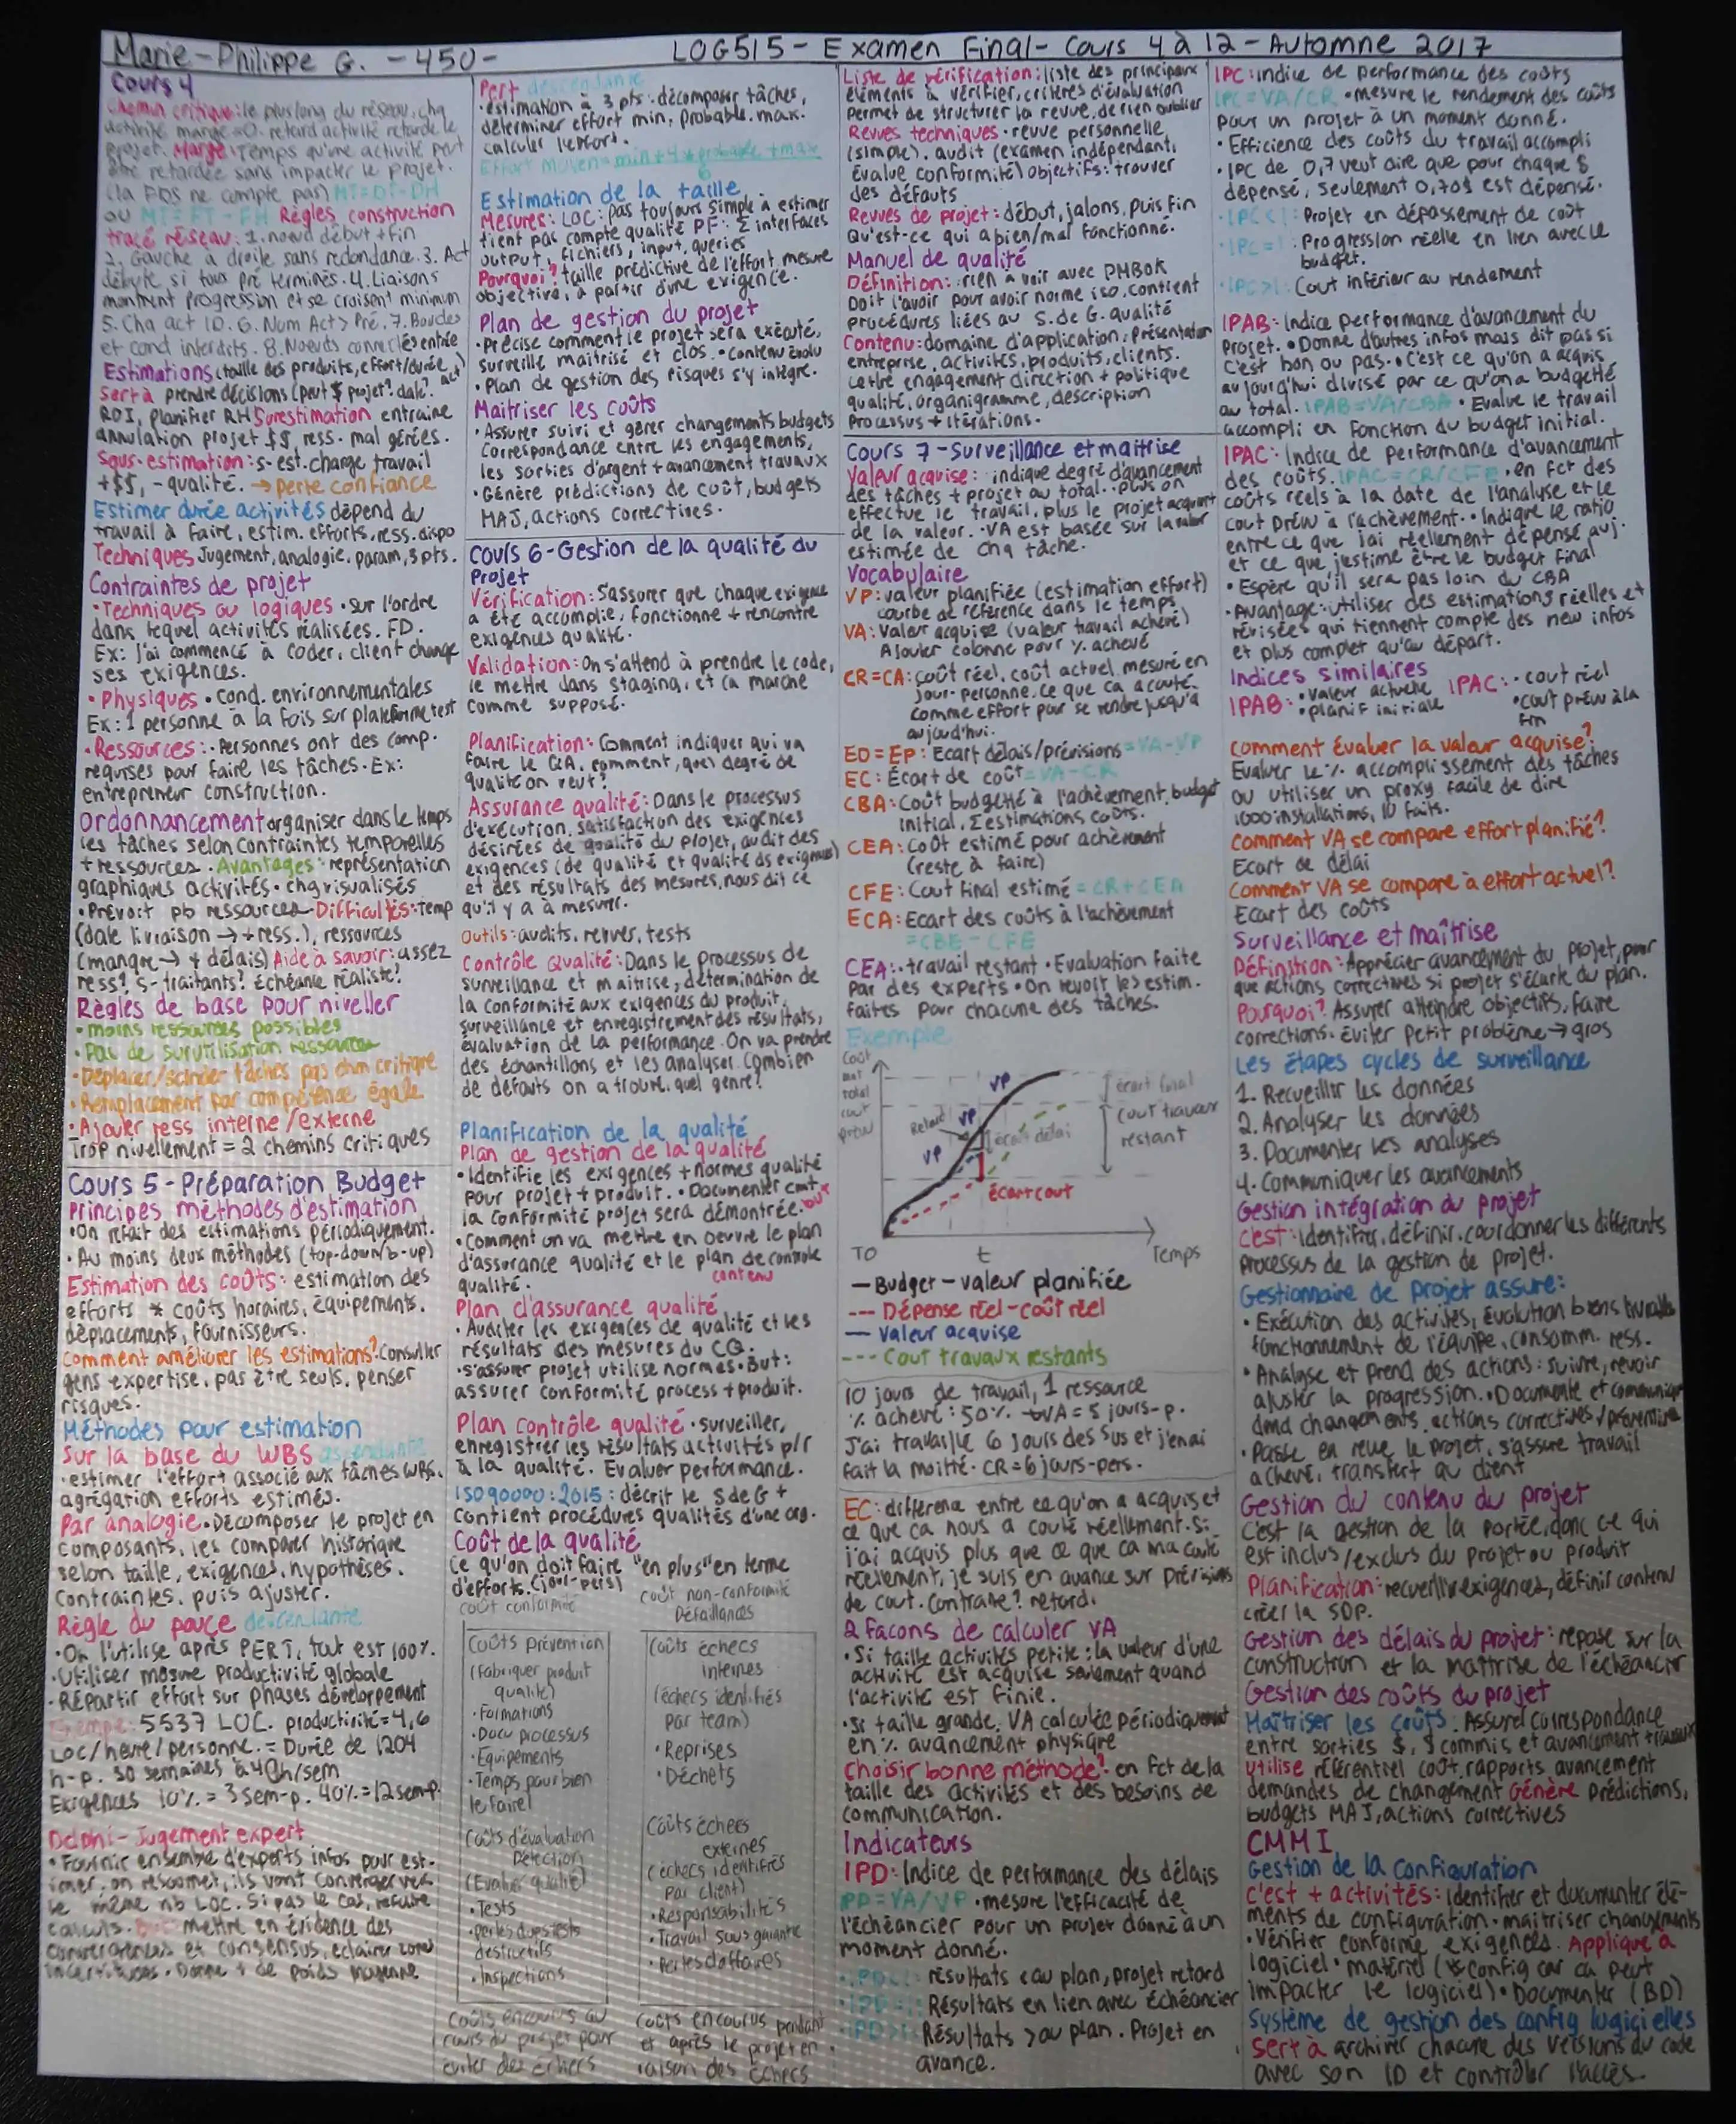 Marie-Philippe G. - 450 - LOG515 - Examen Final - Cours 4 à 12 - Automne 2017
Cours 4
Chemin critique: le plus long du réseau, chq
activité marge=0. retard activité retarde le
projet. Marge: Temps qu'une activité peut
être retardée sans impacter le projet.
(la FDS ne compte pas) MT=DT-DH
ou MT=FT-FH Règles construction
tracé réseau: 1. noeud début + fin
2. Gauche à droite sans redondance. 3. Act
débute si tous pré terminés. 4. Liaisons
montrent progression et se croisent minimum
5. Chq act ID. 6. Num Act > Pré. 7. Boucles
et cond interdits. 8. Noeuds connectés entrée
Estimations (taille des produits, effort/durée, act)
Sert à prendre décisions (peut $ projet? date?
ROI, planifier RH Surestimation entraine
annulation projet $$ ress. mal gérées.
Sous-estimation: s-est. charge travail
+$$, - qualité. → perte confiance
Estimer durée activités dépend du
travail à faire, estim. efforts, ress. dispo
Techniques Jugement, analogie, param, 3 pts.
Contraintes de projet
• Techniques ou logiques • sur l'ordre
dans lequel activités réalisées. FD.
Ex: j'ai commencé à coder, client change
ses exigences.
• Physiques • cond. environnementales
Ex: 1 personne à la fois sur plateforme test
• Ressources: • Personnes ont des comp.
requises pour faire les tâches. Ex:
entrepreneur construction.
Ordonnancement organiser dans le temps
les tâches selon contraintes temporelles
+ ressources. Avantages: représentation
graphiques activités • chq visualisés
• Prévoit pb ressources Difficultés: temp
(date livraison → + ress.), ressources
(manque → + délais) Aide à savoir: assez
ress? S-traitants? Échéance réaliste?
Règles de base pour niveller
• moins ressources possibles
• Pas de surutilisation ressources
• Déplacer/scinder tâches pas chm critique
• Remplacement par compétence égale
• Ajouter ress interne/externe
Trop nivellement = 2 chemins critiques
Cours 5 - Préparation Budget
Principes méthodes d'estimation
• On refait des estimations périodiquement.
• Au moins deux méthodes (top-down/b-up)
Estimation des coûts: estimation des
efforts * coûts horaires, équipements,
déplacements, fournisseurs.
Comment améliorer les estimations? Consulter
gens expertise, pas être seuls, penser
risques.
Méthodes pour estimation
Sur la base du WBS ascendante
• estimer l'effort associé aux tâches WBS.
agrégation efforts estimés.
Par analogie • Décomposer le projet en
composants, les comparer historique
selon taille, exigences, hypothèses,
contraintes, puis ajuster.
Règle du pouce descendante
• On l'utilise après PERT, tout est 100%.
• Utiliser mesure productivité globale
• Répartir effort sur phases développement
Exemple: 5537 LOC. productivité=4,6
Loc/heure/personne. = Durée de 1204
h-p. 30 semaines à 40h/sem
Exigences 10% = 3 sem-p. 40% = 12 sem-p.
Delphi - Jugement expert
• Fournir ensemble d'experts infos pour est-
imer, on résoumet, ils vont converger vers
le même nb LOC. Si pas le cas, refaire
calculs. But mettre en évidence des
convergences et consensus, éclairer zones
incertitudes. Donne + de poids moyenne
Pert descendante
• estimation à 3 pts: décomposer tâches,
déterminer effort min, probable, max.
calculer l'effort.
Effort Moyen = min + 4 * probable + max
6
Estimation de la taille
Mesures: LOC: pas toujours simple à estimer
tient pas compte qualité PF: Σ interfaces
output, fichiers, input, queries
Pourquoi? taille prédictive de l'effort, mesure
objective, à partir d'une exigence.
Plan de gestion du projet
• Précise comment le projet sera exécuté,
surveillé maitrisé et clos. • Contenu évolu
• Plan de gestion des risques s'y intègre.
Maitriser les coûts
• Assurer suivi et gérer changements budgets
correspondance entre les engagements,
les sorties d'argent + avancement travaux
• Génère prédictions de coût, budgets
MAJ, actions correctives.
Cours 6 - Gestion de la qualité du
Projet
Vérification: S'assurer que chaque exigence
a été accomplie, fonctionne + rencontre
exigences qualité.
Validation: On s'attend à prendre le code,
le mettre dans staging, et ça marche
comme supposé.
Planification: Comment indiquer qui va
faire le QA, comment, quel degré de
qualité on veut?
Assurance qualité: Dans le processus
d'exécution, satisfaction des exigences
désirées de qualité du projet, audit des
exigences (de qualité et qualité ds exigences)
et des résultats des mesures, nous dit ce
qu'il y a à mesurer.
Outils: audits, revues, tests
Contrôle Qualité: Dans le processus de
surveillance et maitrise, détermination de
la conformité aux exigences du produit,
surveillance et enregistrement des résultats,
évaluation de la performance. On va prendre
des échantillons et les analyser. Combien
de défauts on a trouvé, quel genre?
Planification de la qualité
Plan de gestion de la qualité
• Identifie les exigences + normes qualité
pour projet + produit. • Documenter cmt
la conformité projet sera démontrée. but
• Comment on va mettre en oeuvre le plan
d'assurance qualité et le plan de contrôle
qualité. contenu
Plan d'assurance qualité
• Auditer les exigences de qualité et les
résultats des mesures du CQ.
• S'assurer projet utilise normes. But:
assurer conformité process + produit.
Plan contrôle qualité • surveiller,
enregistrer les résultats activités p/r
à la qualité. Évaluer performance.
ISO 90000:2015: décrit le S de G +
contient procédures qualités d'une org.
Coût de la qualité
Ce qu'on doit faire "en plus" en terme
d'efforts. (jour-pers)
coût conformité
coût non-conformité
Défaillances
Coûts prévention
(Fabriquer produit
qualité)
• Formations
• Docu processus
• Équipements
• Temps pour bien
le faire
Coûts d'évaluation
Détection
(Évaluer qualité)
• Tests
• pertes dues tests
destructifs
• Inspections
Coûts encourus au
cours du projet pour
éviter des échecs
Coûts échecs
internes
(échecs identifiés
par team)
• Reprises
• Déchets
Coûts échecs
externes
(échecs identifiés
par client)
• Responsabilités
• Travail sous garantie
• Pertes d'affaires
Coûts encourus pendant
et après le projet en
raison des échecs
Liste de vérification: liste des principaux
éléments à vérifier, critères d'évaluation
Permet de structurer la revue, de rien oublier
Revues techniques • revue personnelle
(simple). audit (examen indépendant,
évalue conformité) objectifs: trouver
des défauts
Revues de projet: début, jalons, puis fin
Qu'est-ce qui a bien/mal fonctionné.
Manuel de qualité
Définition: rien à voir avec PMBOK
Doit l'avoir pour avoir norme iso, contient
procédures liées au S. de G. qualité
Contenu: domaine d'application, Présentation
entreprise, activités, produits, clients.
Lettre engagement direction + politique
qualité, organigramme, description
Processus + itérations.
Cours 7 - Surveillance et maitrise
Valeur acquise: indique degré d'avancement
des tâches + projet au total. • Plus on
effectue le travail, plus le projet acquiert
de la valeur. • VA est basée sur la valeur
estimée de chq tâche.
Vocabulaire
VP: valeur planifiée (estimation effort)
courbe de référence dans le temps
VA: Valeur acquise (valeur travail achevé)
Ajouter colonne pour % achevé
CR=CA: coût réel, coût actuel mesuré en
jour-personne. ce que ça a couté
comme effort pour se rendre jusqu'à
aujourd'hui.
ED=EP: Ecart délais/prévisions = VA-VP
EC: Écart de coût = VA-CR
CBA: Coût budgetté à l'achèvement, budget
initial, Σ estimations coûts.
CEA: Coût estimé pour achèvement
(reste à faire)
CFE: Cout final estimé = CR+CEA
ECA: Ecart des coûts à l'achèvement
= CBE - CFE
CEA: • travail restant • Evaluation faite
par des experts • On revoit les estim.
faites pour chacune des tâches.
Exemple
Coût
total
cout
prévu
VP
VP
VP
Retard
écart délai
écart cout
écart final
Cout travaux
restant
T0 t Temps
— Budget - valeur planifiée
--- Dépense réel - coût réel
— Valeur acquise
--- Cout travaux restants
10 jours de travail, 1 ressource
% achevé: 50% → VA = 5 jours-p.
J'ai travaillé 6 jours dessus et j'en ai
fait la moitié. CR = 6 jours-pers.
EC: différence entre ce qu'on a acquis et
ce que ça nous a couté réellement. Si
j'ai acquis plus que ce que ça m'a couté
réellement, je suis en avance sur prévisions
de cout. Contraire? retard.
2 façons de calculer VA
• Si taille activités petite: la valeur d'une
activité est acquise seulement quand
l'activité est finie.
• Si taille grande, VA calculée périodiquement
en % avancement physique
Choisir bonne méthode? en fct de la
taille des activités et des besoins de
communication.
Indicateurs
IPD: Indice de performance des délais
IPD=VA/VP • mesure l'efficacité de
l'échéancier pour un projet donné à un
moment donné.
• IPD<1: résultats < au plan, projet retard
• IPD=1: Résultats en lien avec échéancier
• IPD>1: Résultats > au plan. Projet en
avance.
IPC: indice de performance des coûts
IPC=VA/CR • mesure le rendement des coûts
pour un projet à un moment donné.
• Efficience des coûts du travail accompli
• IPC de 0,7 veut dire que pour chaque $
dépensé, seulement 0,70$ est dépensé.
• IPC<1: Projet en dépassement de coût
• IPC=1: Progression réelle en lien avec le
budget.
• IPC>1: Cout inférieur au rendement
IPAB: Indice performance d'avancement du
Projet. • Donne d'autres infos mais dit pas si
c'est bon ou pas. • C'est ce qu'on a acquis
aujourd'hui divisé par ce qu'on a budgetté
au total. IPAB=VA/CBA • Évalue le travail
accompli en fonction du budget initial.
IPAC: Indice de Performance d'avancement
des coûts. IPAC=CR/CFE • en fct des
coûts réels à la date de l'analyse et le
cout prévu à l'achèvement. • Indique le ratio
entre ce que j'ai réellement dépensé auj.
et ce que j'estime être le budget final
• Espère qu'il sera pas loin du CBA
• Avantage: utiliser des estimations réelles et
révisées qui tiennent compte des new infos
et plus complet qu'au départ.
Indices similaires
IPAB: • valeur actuelle • planif initiale
IPAC: • cout réel • cout prévu à la fin
Comment évaluer la valeur acquise?
Evaluer le % accomplissement des tâches
ou utiliser un proxy facile de dire
1000 installations, 10 faits.
Comment VA se compare effort planifié?
Ecart de délai
Comment VA se compare à effort actuel?
Ecart des coûts
Surveillance et maîtrise
Définition: Apprécier avancement du projet, pour
que actions correctives si projet s'écarte du plan.
Pourquoi? Assurer atteindre objectifs, faire
corrections. Éviter petit problème → gros
Les étapes cycles de surveillance
1. Recueillir les données
2. Analyser les données
3. Documenter les analyses
4. Communiquer les avancements
Gestion intégration du projet
C'est: identifier, définir, coordonner les différents
processus de la gestion de projet.
Gestionnaire de projet assure:
• Exécution des activités, évolution biens livrables
fonctionnement de l'équipe, consomm. ress.
• Analyse et prend des actions: suivre, revoir
ajuster la progression. • Documente et communique
dmd changements, actions correctives/préventive
• Passe en revue le projet, s'assure travail
achevé, transfert au client
Gestion du contenu du projet
C'est la gestion de la portée, donc ce qui
est inclus/exclus du projet ou produit
Planification: recueillir exigences, définir contenu
créer la SDP.
Gestion des délais du projet: repose sur la
construction et la maîtrise de l'échéancier
Gestion des coûts du projet
Maîtriser les coûts: Assurer correspondance
entre sorties $, $ commis et avancement travaux
Utilise référentiel cout, rapports avancement
demandes de changement Génère prédictions,
budgets MAJ, actions correctives
CMMI
Gestion de la Configuration
C'est + activités: identifier et documenter élé-
ments de configuration • maitriser changements
• Vérifier conforme exigences. Applique à
logiciel • matériel (config car ça peut
impacter le logiciel) • Documenter (BD)
Système de gestion des config logicielles
Sert à archiver chacune des versions du code
avec son ID et contrôler l'accès.